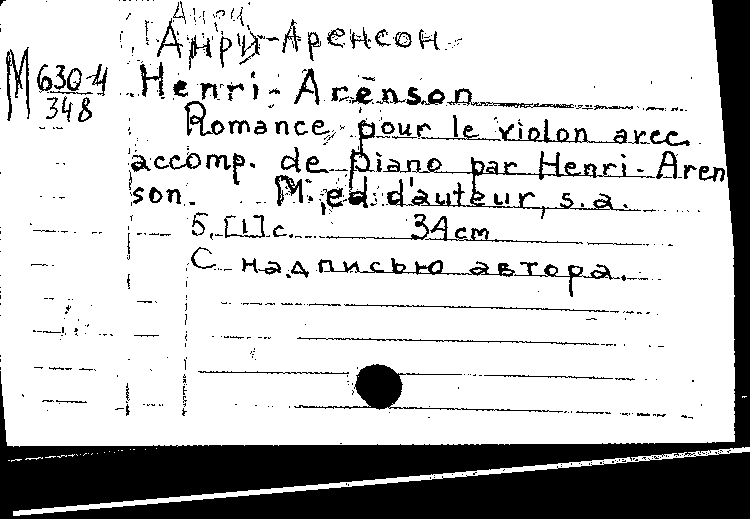 Анри
Анри-Аренсон
М 630-4
348
Henri-Arenson
Romance pour le violon avec
accomp. de piano par Henri-Aren
son. M., ed. d'auteur, s.a.
5, [1] с. 34 cm
С надписью автора.